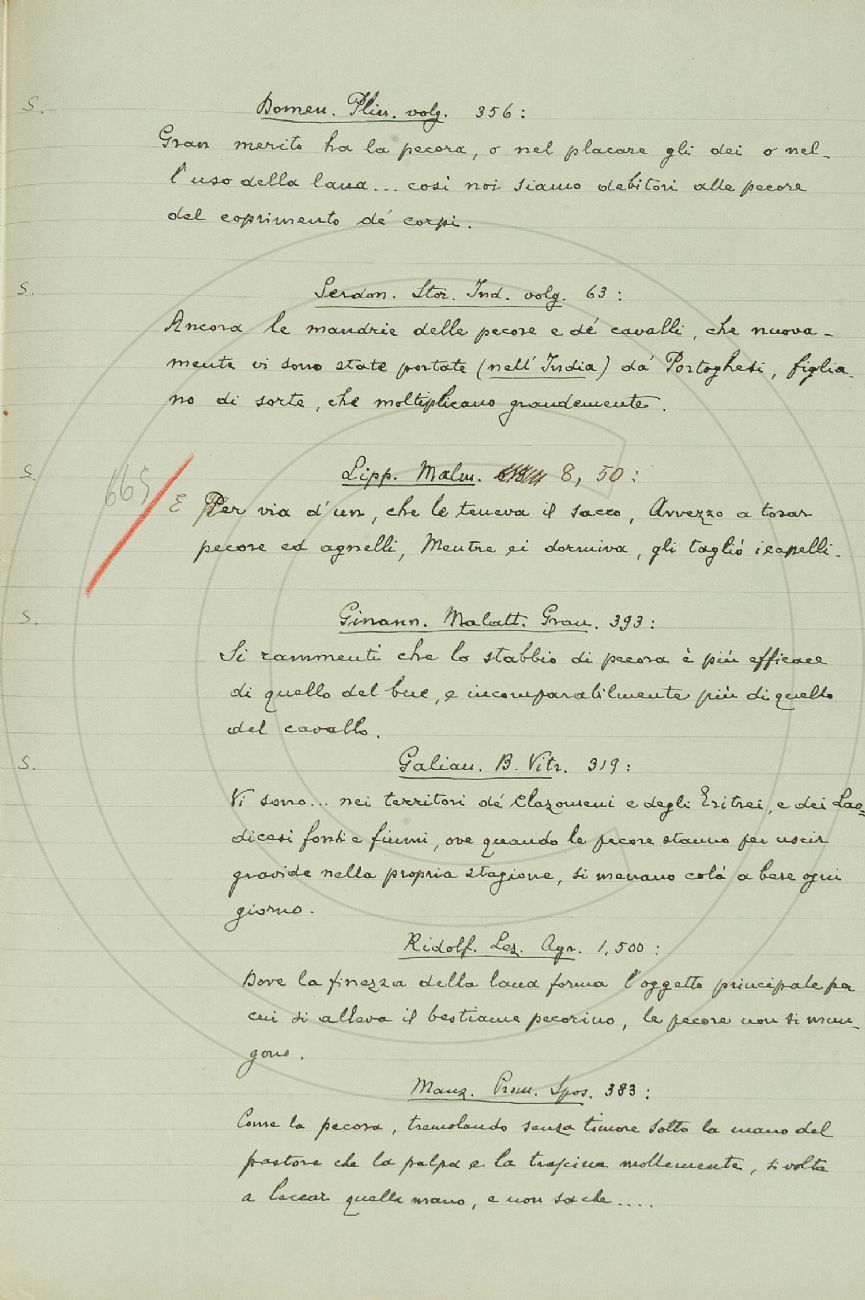 S. Domen. Plin. volg. 356:
Gran merito ha la pecora, o nel placare gli dei o nel-
l'uso della lana... così noi siamo debitori alle pecore
del coprimento de' corpi.
S. Serdon. Stor. Ind. volg. 63:
Ancora le mandrie delle pecore e de' cavalli, che nuova-
mente vi sono state portate (nell'India) da' Portoghesi, figlia-
no di sorte, che moltiplicano grandemente.
S. Lipp. Malm. 8, 50:
665
E Per via d'un, che le teneva il sacco, Avvezzo a tosar
pecore ed agnelli, Mentre ei dormiva, gli tagliò i capelli.
S. Ginann. Malatt. Gran. 393:
Si rammenti che lo stabbio di pecora è più efficace
di quello del bue, e incomparabilmente più di quello
del cavallo.
S. Galian. B. Vitr. 319:
Vi sono... nei territori de' Clazomeni e degli Eritrei, e dei Lao-
dicesi fonti e fiumi, ove quando le pecore stanno per uscir
gravide nella propria stagione, si menano colà a bere ogni
giorno.
Ridolf. Lez. Agr. 1, 500:
Dove la finezza della lana forma l'oggetto principale per
cui si alleva il bestiame pecorino, le pecore non si mun-
gono.
Manz. Prom. Spos. 383:
Come la pecora, tremolando senza timore sotto la mano del
pastore che la palpa e la trascina mollemente, si volta
a leccar quella mano, e non sa che....